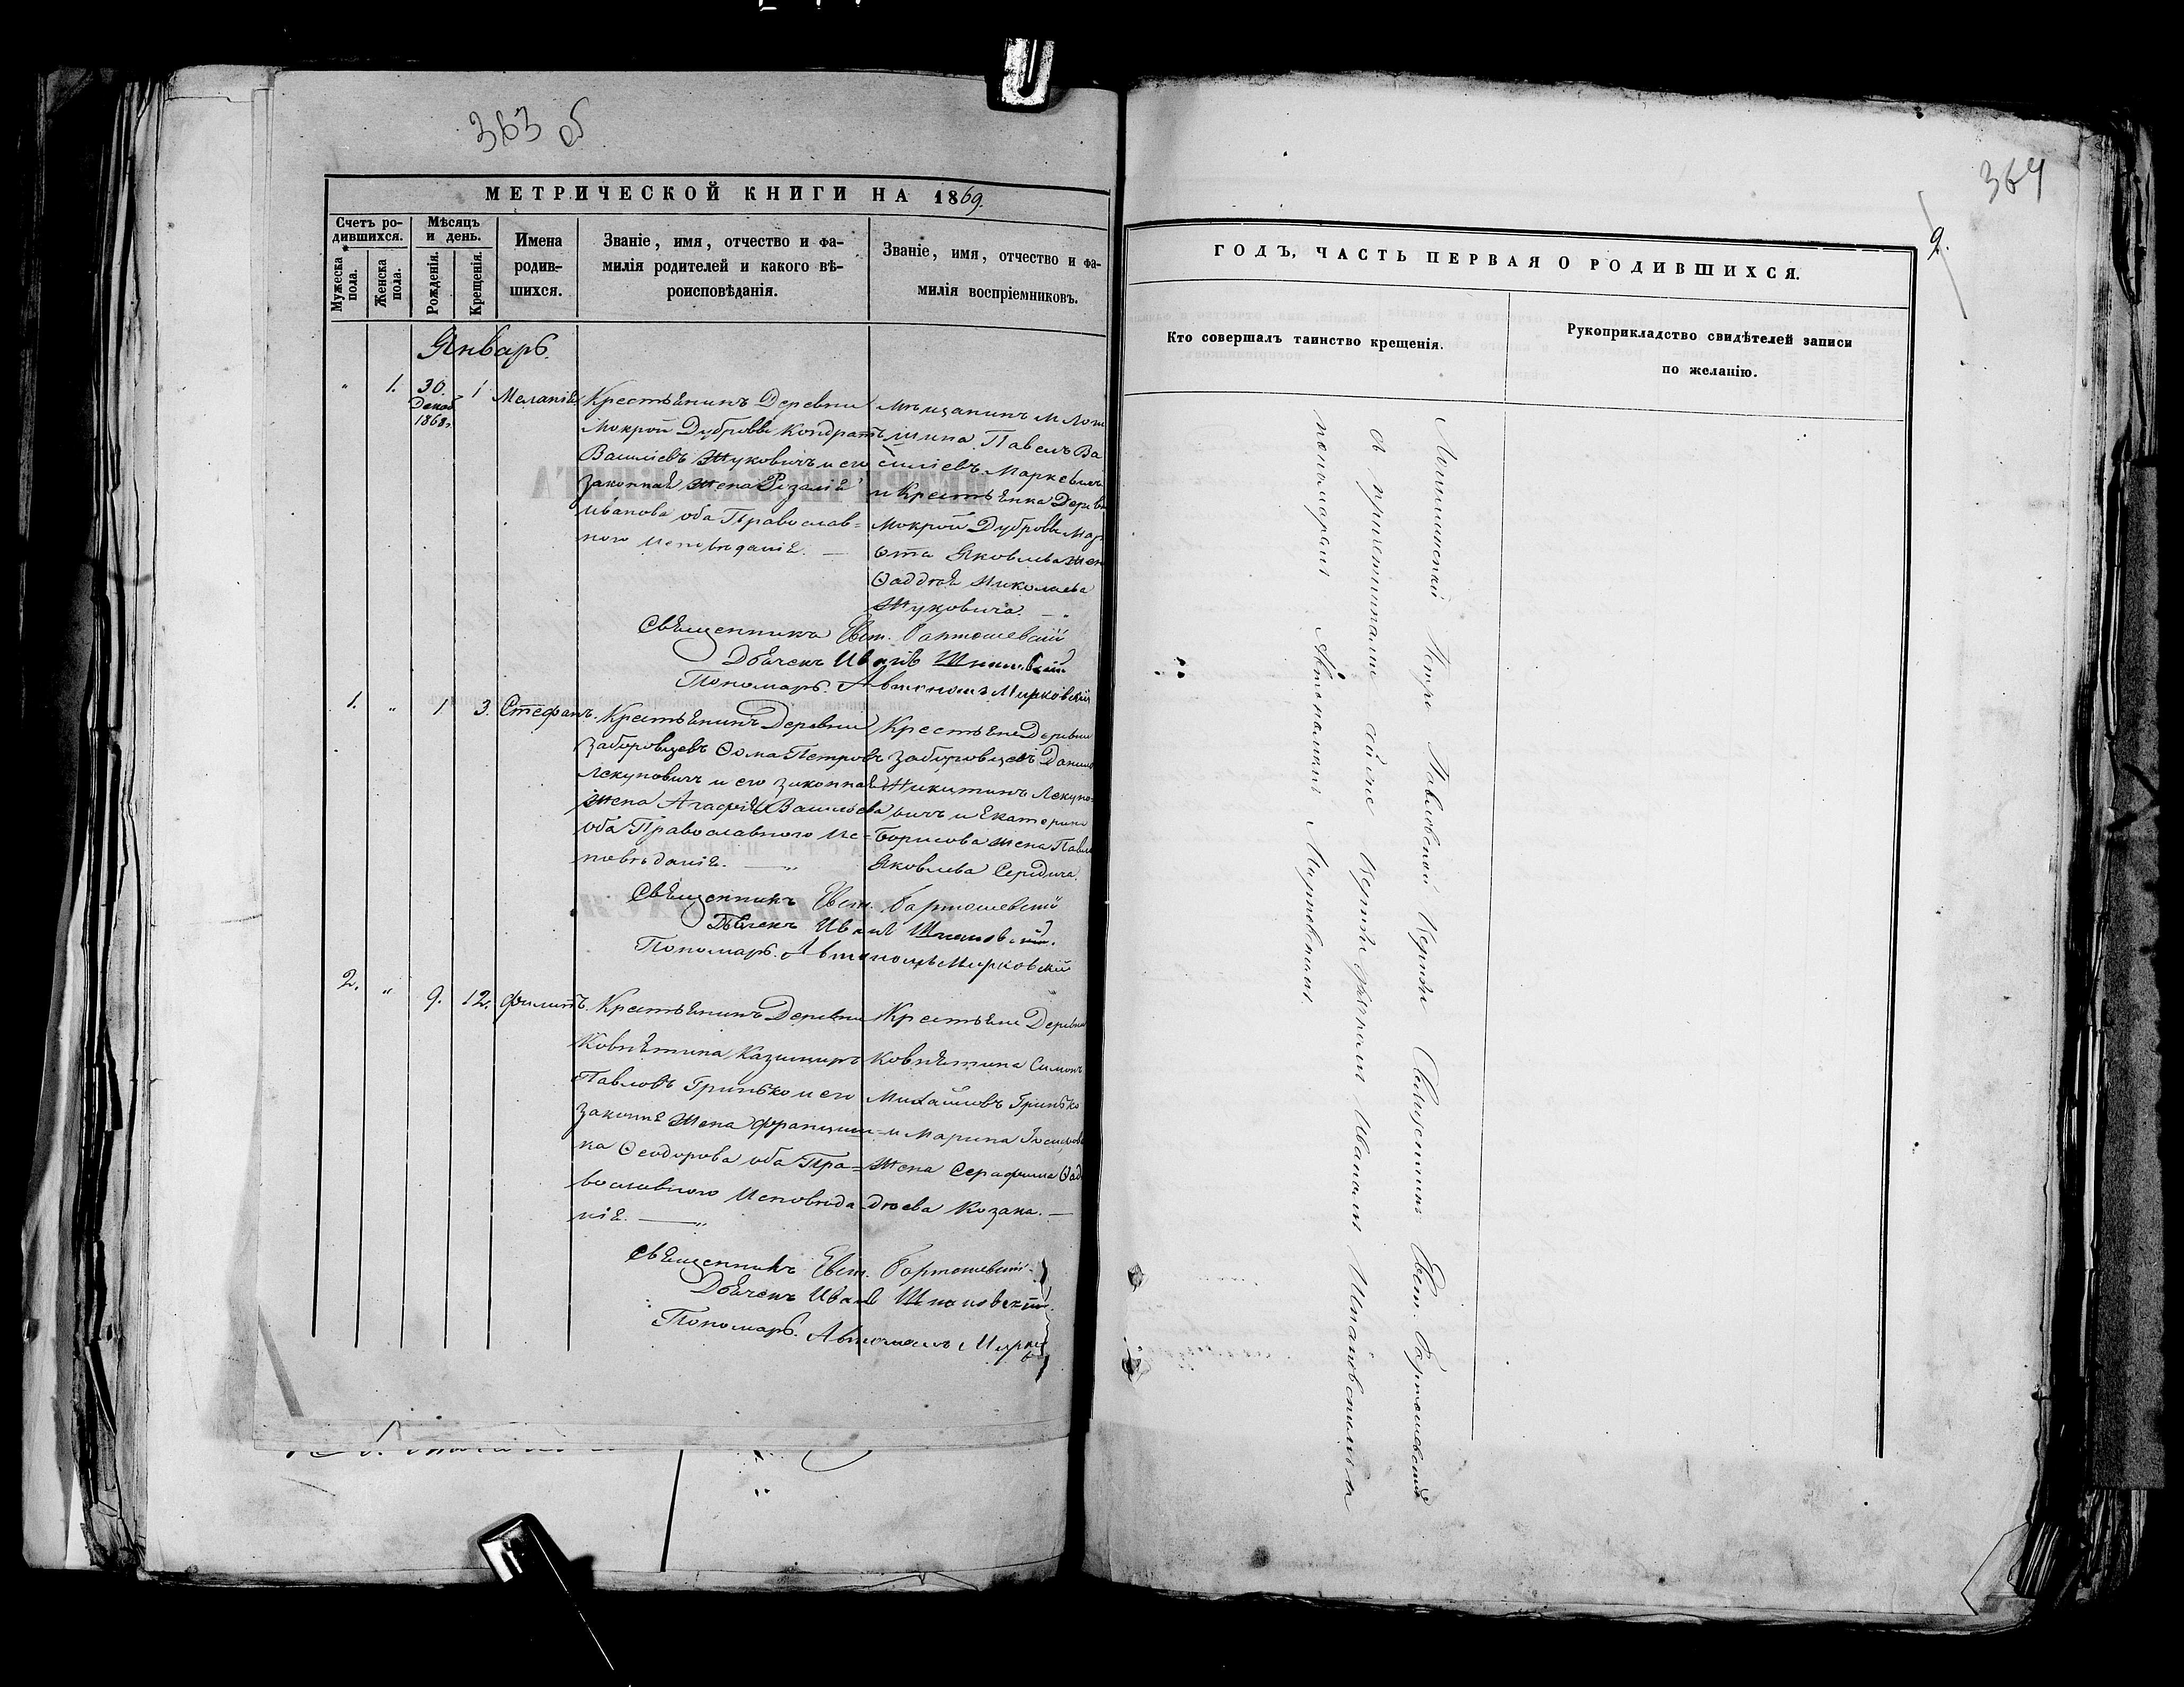 363 об
МЕТРИЧЕСКОЙ КНИГИ НА 1869.
Счетъ ро-
дившихся.
Мужеска пола.
Женска пола.
Мѣсяцъ
и день.
Рожденія.
Крещенія.
Имена
родив-
шихся.
Званіе, имя, отчество и фа-
милія родителей и какого вѣ-
роисповѣданія.
Званіе, имя, отчество и фа-
милія воспріемниковъ.
Январь.
" 1. 30. Декаб 1868г 1 Меланія
Крестьянинъ Деревни
Мокрой Дубровы Кондратъ
Василіевъ Жуковичъ и его
законная жена Розалія
Иванова оба Православ=
ного исповѣданія. —
Мѣщанинъ м. Лог
ишина Павелъ Ва
силіевъ Маркевичъ
и Крестьянка Дерев
Мокрой Дубровы Мар
Яковлева жен
Ѳаддея Николаева
Жуковича. —
Священникъ Евст. Бартошевскій
Дьячекъ Иванъ
Пономарь Автономъ Мирковскій
1. " 1 3. Стефанъ.
Крестьянинъ Деревни
Заборовцевъ Ѳома Петровъ
и его законная
жена Агафія Василева
оба Православного Ис=
повѣданія. — "
Крестьяне Деревни
Заборовцевъ Данилъ
Никитинъ
вичъ и Екатерина
Борисова жена Павла
Яковлева Середича.
Священникъ Евст. Бартошевскій
Дьячекъ Иванъ
Пономарь Автономъ Мирковскій
2. " 9. 12. Филипъ.
Крестьянинъ Деревни
Ковнятина Казимиръ
Павловъ Гринько и его
законная жена Францишка
Ѳеодорова оба Пра=
вославного Исповѣда
нія. — "
Крестьяне Деревни
Ковнятина Симонъ
Михаиловъ Гринько
и Марина Іосифова
жена Серафима Ѳад
деева Козака. —
Священникъ Евст. Бартошевскій
Дьячекъ Иванъ
Пономарь Автономъ Мирков
364
9.
ГОДЪ, ЧАСТЬ ПЕРВАЯ О РОДИВШИХСЯ.
Кто совершалъ таинство крещенія.
Рукоприкладство свидѣтелей записи
по желанію.
Логишинской Петро Павловской Церкви Священникъ Евст. Бартошевскій
съ причетниками сей Церкви Иваномъ
пономаремъ Автономомъ Мирковскимъ.